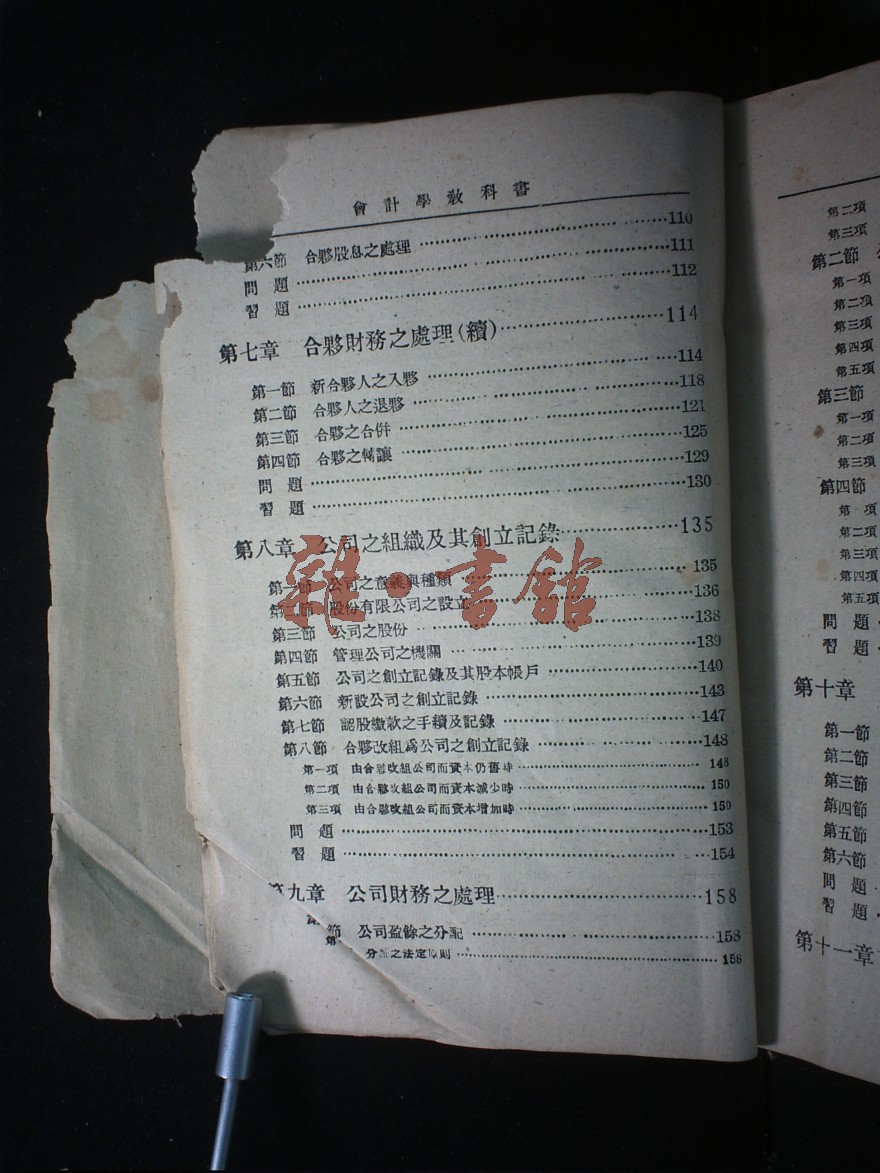 會計學教科書
第六節 合夥股息之處理 110
問題 111
習題 112
第七章 合夥財務之處理(續) 114
第一節 新合夥人之入夥 114
第二節 合夥人之退夥 118
第三節 合夥之合併 121
第四節 合夥之轉讓 125
問題 129
習題 130
第八章 公司之組織及其創立記錄 135
第一節 公司之意義與種類 135
第二節 股份有限公司之設立 136
第三節 公司之股份 138
第四節 管理公司之機關 139
第五節 公司之創立記錄及其股本帳戶 140
第六節 新設公司之創立記錄 143
第七節 認股繳款之手續及記錄 147
第八節 合夥改組爲公司之創立記錄 148
第一項 由合夥改組公司而資本仍舊時 148
第二項 由合夥改組公司而資本減少時 150
第三項 由合夥改組公司而資本增加時 150
問題 153
習題 154
第九章 公司財務之處理 158
節 公司盈餘之分配 158
第 分配之法定原則 158
雜·書館
第二項
第三項
第二節
第一項
第二項
第三項
第四項
第五項
第三節
第一項
第二項
第三項
第四節
第一項
第二項
第三項
第四項
第五項
問題
習題
第十章
第一節
第二節
第三節
第四節
第五節
第六節
問題
習題
第十一章